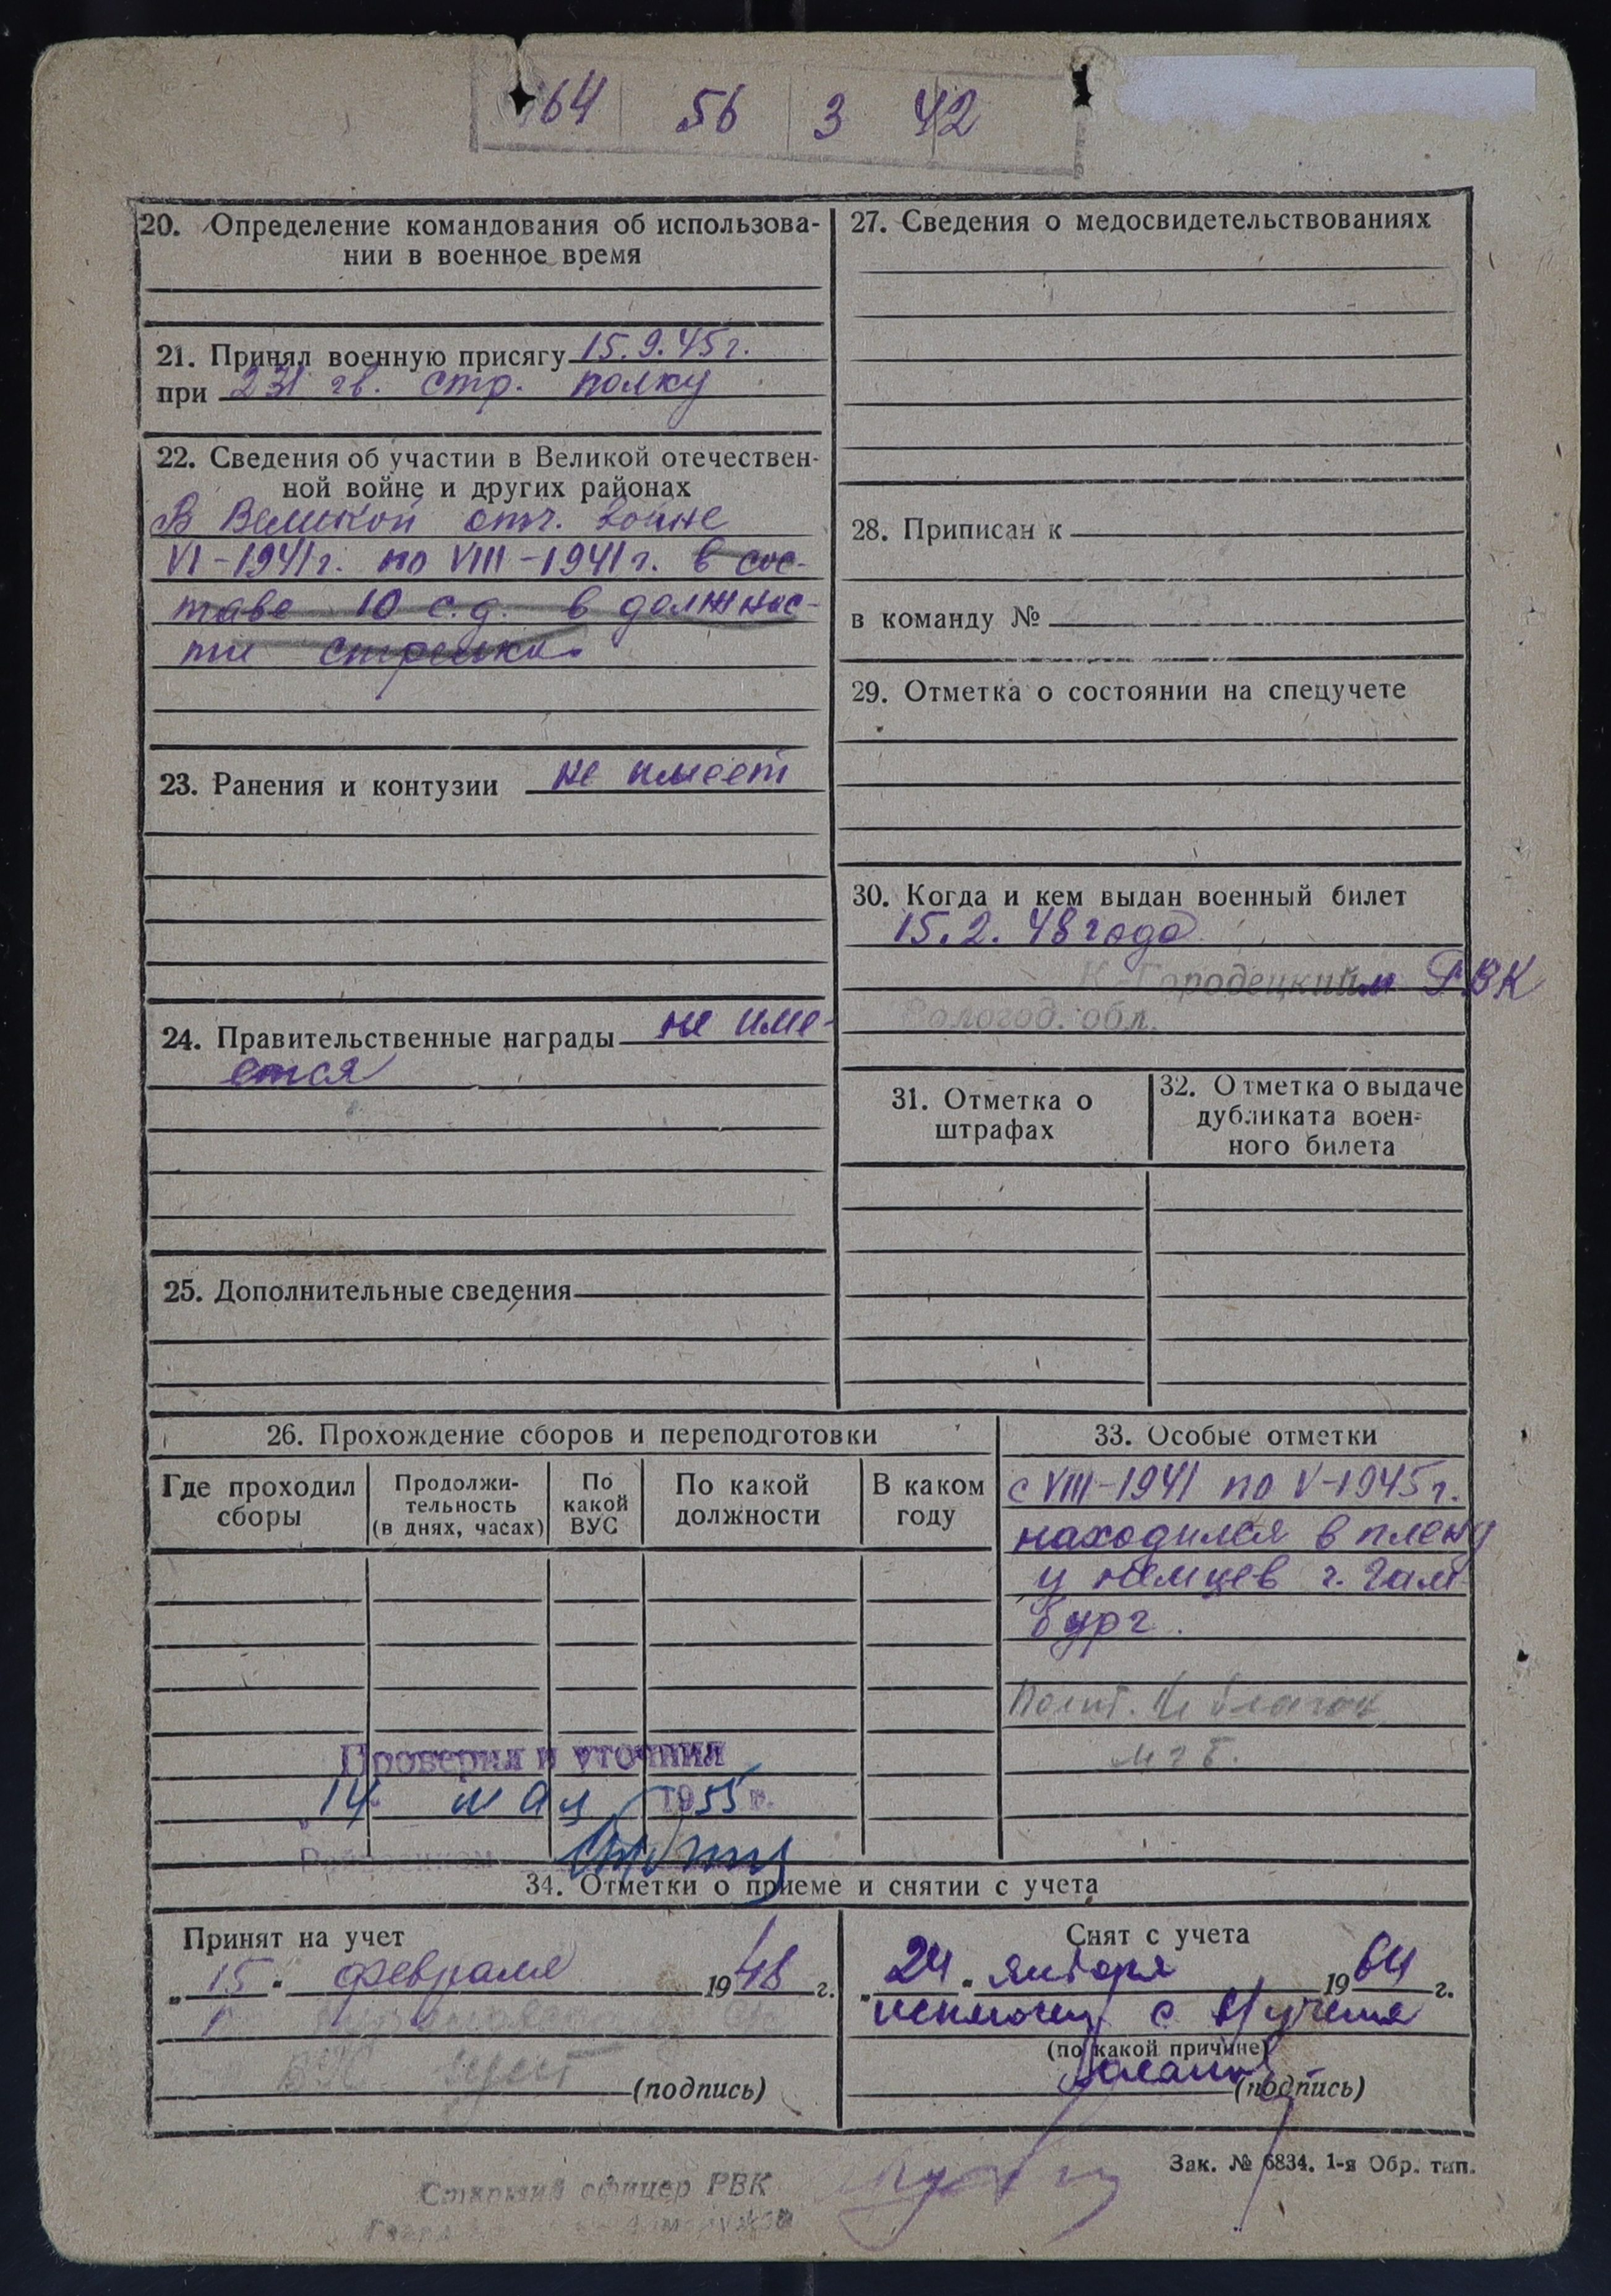 64 56 3 42
20. Определение командования об использова-
нии в военное время
21. Принял военную присягу 15.9.45г.
при 231 гв. стр. полку
22. Сведения об участии в Великой отечествен-
ной войне и других районах
В Великой отч. войне
VI-1941г. по VIII-1941г. в сос-
таве 10 с.д. в должнос-
ти стрелка
23. Ранения и контузии не имеет
24. Правительственные награды не име-
ется
25. Дополнительные сведения
27. Сведения о медосвидетельствованиях
28. Приписан к
в команду №
29. Отметка о состоянии на спецучете
30. Когда и кем выдан военный билет
15.2.48 года
К-Городецким РВК
Вологод. обл.
31. Отметка о
штрафах
32. Отметка о выдаче
дубликата воен-
ного билета
26. Прохождение сборов и переподготовки
Где проходил
сборы
Продолжи-
тельность
(в днях, часах)
По
какой
ВУС
По какой
должности
В каком
году
Проверил и уточнил
14 мая 1955 г.
33. Особые отметки
с VIII-1941 по V-1945г.
находился в плену
у немцев г. Гам
бург.
34. Отметки о приеме и снятии с учета
Принят на учет
„15" февраля 1948 г.
(подпись)
Снят с учета
„24" января 1964 г.
с в/учета
(по какой причине)
(подпись)
Зак. № 6834. 1-я Обр. тип.
Старший офицер РВК